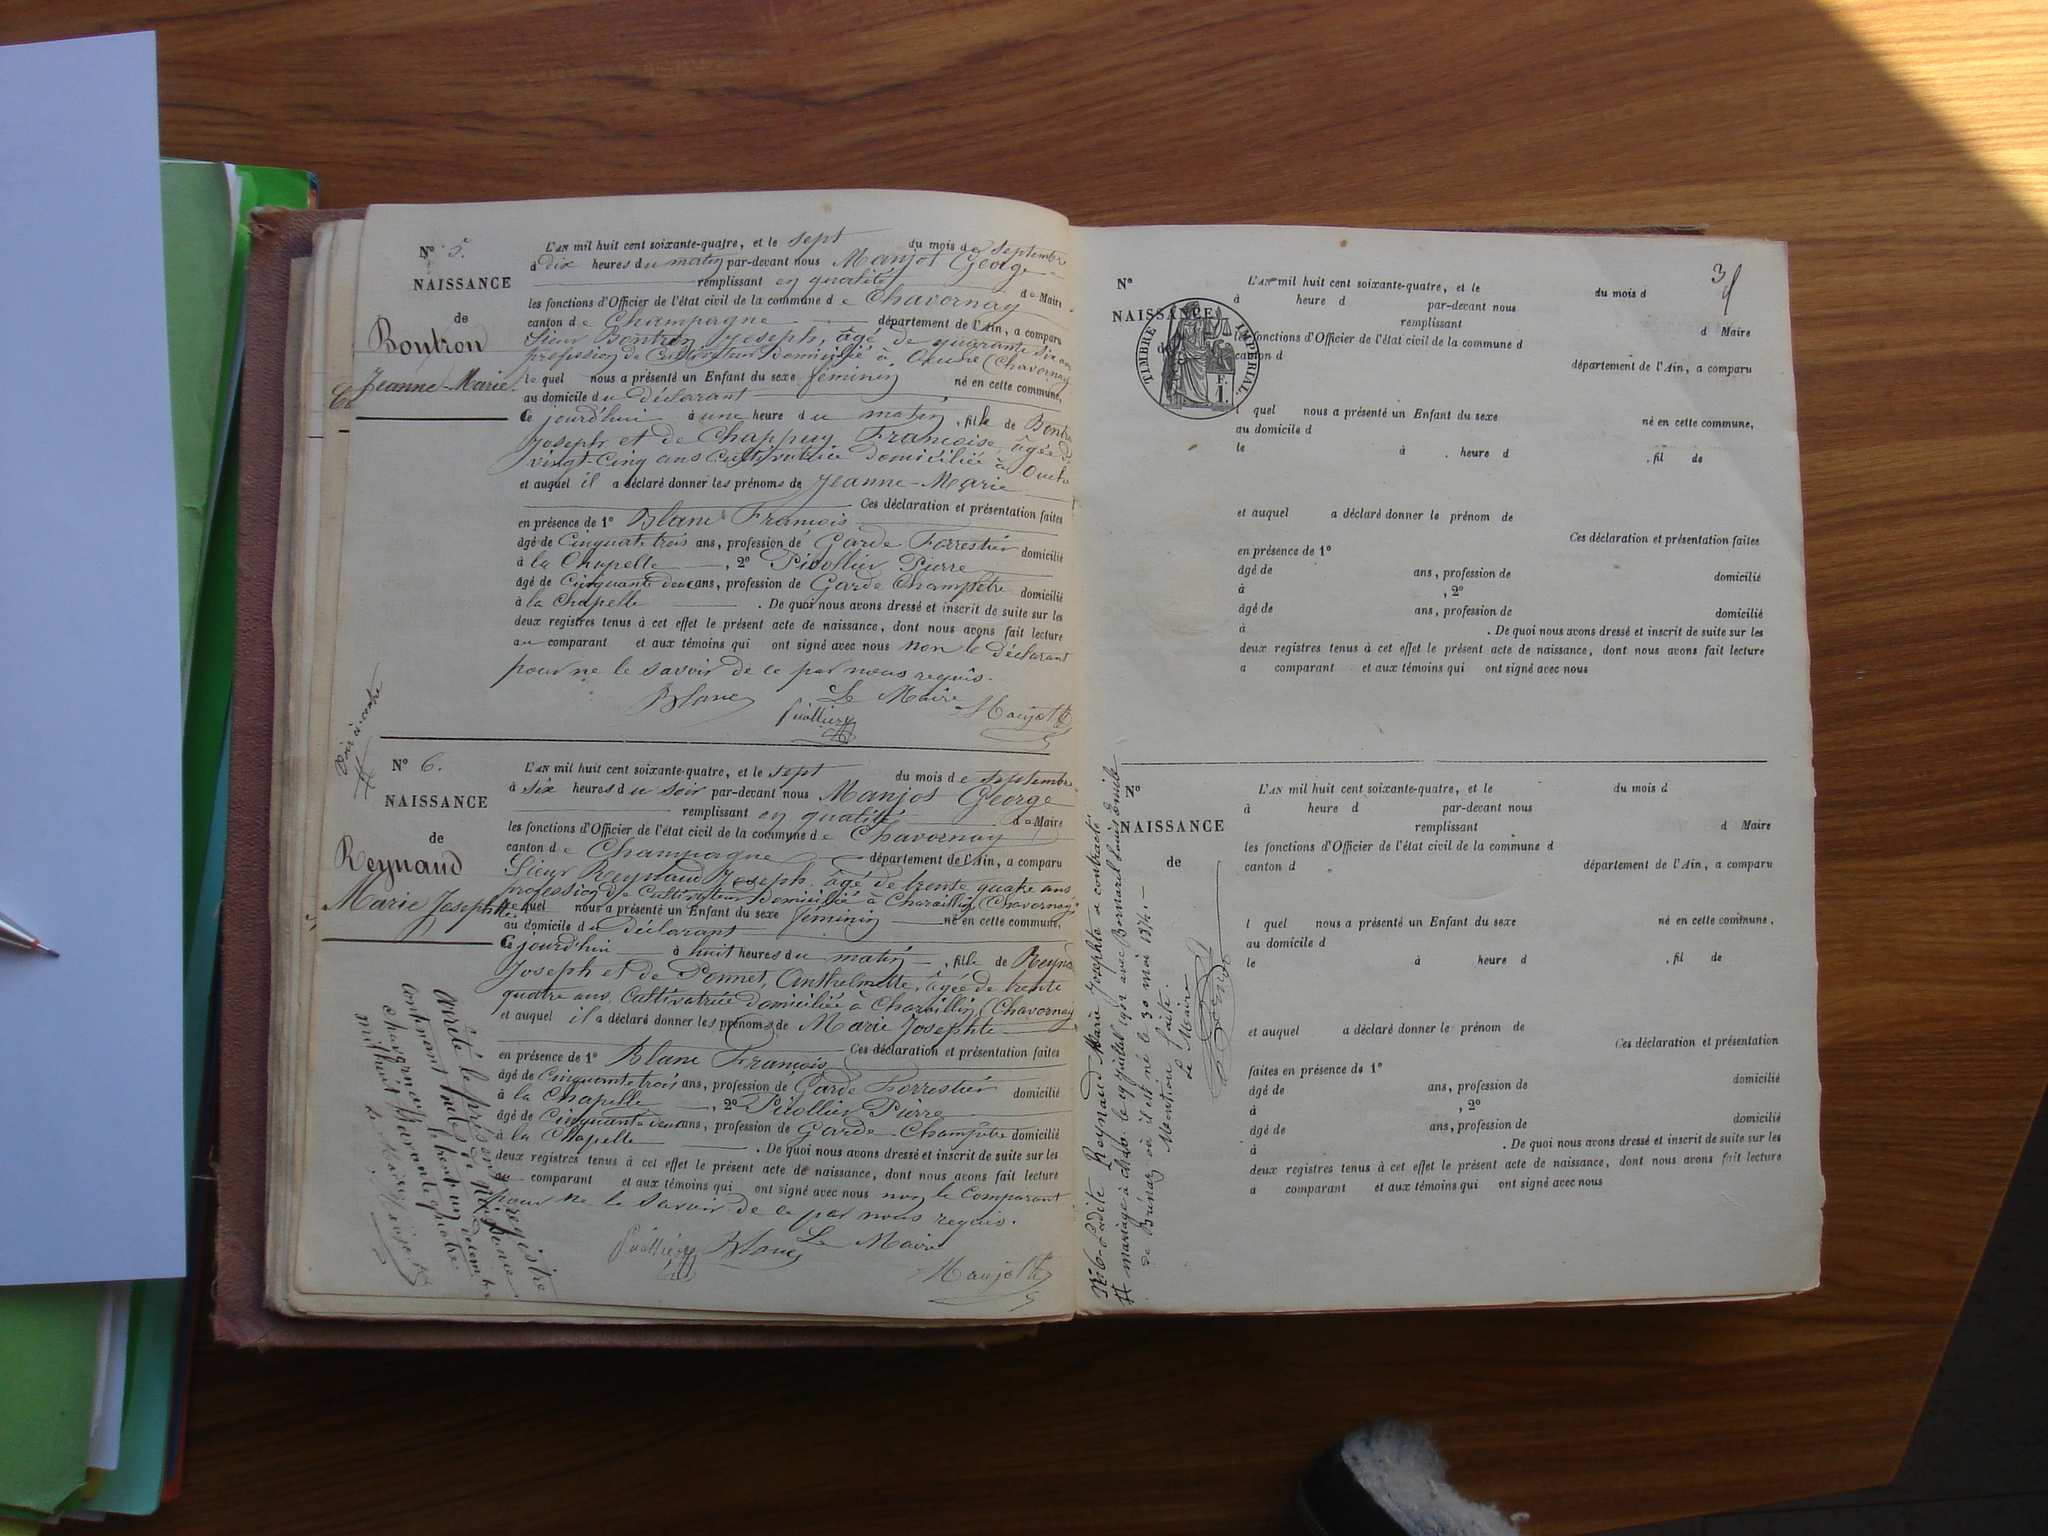 N° 5.
NAISSANCE
de
Bontron
Jeanne-Marie
L'AN mil huit cent soixante-quatre, et le sept du mois de septembre
à dix heures du matin par-devant nous Manjot George
remplissant en qualité de Maire
les fonctions d'Officier de l'état civil de la commune de Chavornay
canton de Champagne département de l'Ain, a comparu
Sieur Bontron Joseph, âgé de quarante six ans
profession de Cultivateur Domicilié à (Chavornay)
lequel nous a présenté un Enfant du sexe féminin né en cette commune,
au domicile du Déclarant
Ce jourd'hui à une heure du matin, fille de Bontron
Joseph et de Chappuy Françoise, âgée de
vingt-cinq ans Cultivatrice domiciliée à
et auquel il a déclaré donner les prénoms de Jeanne-Marie
Ces déclaration et présentation faites
en présence de 1° Blanc François
âgé de Cinquante trois ans, profession de Garde Forrestier domicilié
à la Chapelle, 2° Picollier Pierre
âgé de Cinquante deux ans, profession de Garde Champêtre domicilié
à la Chapelle. De quoi nous avons dressé et inscrit de suite sur les
deux registres tenus à cet effet le présent acte de naissance, dont nous avons fait lecture
au comparant et aux témoins qui ont signé avec nous non le déclarant
pour ne le savoir de ce par nous requis.
Blanc Le Maire
Picollier Manjot G
Voir ci-contre
N° 6.
NAISSANCE
de
Reynaud
Marie Josephte
L'AN mil huit cent soixante-quatre, et le sept du mois de septembre
à six heures du soir par-devant nous Manjot George
remplissant en qualité de Maire
les fonctions d'Officier de l'état civil de la commune de Chavornay
canton de Champagne département de l'Ain, a comparu
Sieur Reynaud Joseph, âgé de trente quatre ans
profession de Cultivateur Domicilié à Charaillin (Chavornay)
lequel nous a présenté un Enfant du sexe féminin né en cette commune,
au domicile du Déclarant
Ce jourd'hui à huit heures du matin, fille de Reynaud
Joseph et de Ponnet, Anthelmette, âgée de trente
quatre ans, Cultivatrice domiciliée à Charaillin (Chavornay)
et auquel il a déclaré donner les prénoms de Marie Josephte
Ces déclaration et présentation faites
en présence de 1° Blanc François
âgé de Cinquante trois ans, profession de Garde Forrestier domicilié
à la Chapelle, 2° Picollier Pierre
âgé de Cinquante deux ans, profession de Garde-Champêtre domicilié
à la Chapelle. De quoi nous avons dressé et inscrit de suite sur les
deux registres tenus à cet effet le présent acte de naissance, dont nous avons fait lecture
au comparant et aux témoins qui ont signé avec nous non le Comparant
pour ne le savoir de ce par nous requis.
Picollier Blanc Le Maire
Manjot G
Arrêté le présent registre
contenant six actes de Naissance
Chavornay le trente un Décembre
mil huit cent soixante quatre.
Le Maire Manjot G
3
N°
NAISSANCE
de
TIMBRE IMPÉRIAL
F.
1.
L'AN mil huit cent soixante-quatre, et le du mois d
à heure d par-devant nous
remplissant d Maire
les fonctions d'Officier de l'état civil de la commune d
canton d département de l'Ain, a comparu
l quel nous a présenté un Enfant du sexe né en cette commune,
au domicile d
le à heure d , fil de
et auquel a déclaré donner le prénom de
Ces déclaration et présentation faites
en présence de 1°
âgé de ans, profession de domicilié
à , 2°
âgé de ans, profession de domicilié
à . De quoi nous avons dressé et inscrit de suite sur les
deux registres tenus à cet effet le présent acte de naissance, dont nous avons fait lecture
a comparant et aux témoins qui ont signé avec nous
N° 6. Ladite Reynaud Marie Josephte a contracté
mariage à le 29 juillet 1901 avec Bornarel Louis Émile
de Brénaz où il est né le 30 mai 1874.
Mention faite.
Le Maire
N°
NAISSANCE
de
L'AN mil huit cent soixante-quatre, et le du mois d
à heure d par-devant nous
remplissant d Maire
les fonctions d'Officier de l'état civil de la commune d
canton d département de l'Ain, a comparu
l quel nous a présenté un Enfant du sexe né en cette commune,
au domicile d
le à heure d , fil de
et auquel a déclaré donner le prénom de
Ces déclaration et présentation
faites en présence de 1° domicilié
âgé de ans, profession de
à , 2° domicilié
âgé de ans, profession de
à . De quoi nous avons dressé et inscrit de suite sur les
deux registres tenus à cet effet le présent acte de naissance, dont nous avons fait lecture
a comparant et aux témoins qui ont signé avec nous